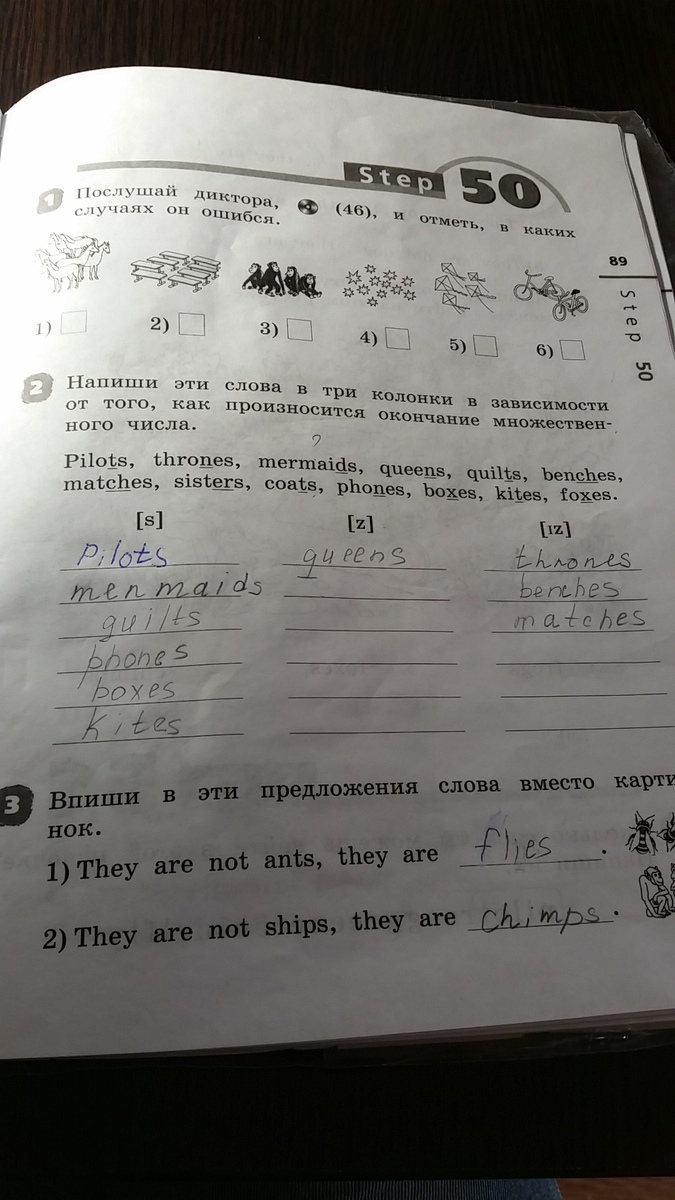 Step 50
1 Послушай диктора, (46), и отметь, в каких
случаях он ошибся.
89
Step 50
1) 2) 3) 4) 5) 6)
2 Напиши эти слова в три колонки в зависимости
от того, как произносится окончание множествен-
ного числа.
?
Pilots, thrones, mermaids, queens, quilts, benches,
matches, sisters, coats, phones, boxes, kites, foxes.
[s] [z] [ɪz]
Pilots queens thrones
menmaids benches
quilts matches
phones
boxes
kites
3 Впиши в эти предложения слова вместо карти
нок.
1) They are not ants, they are flies.
2) They are not ships, they are chimps.